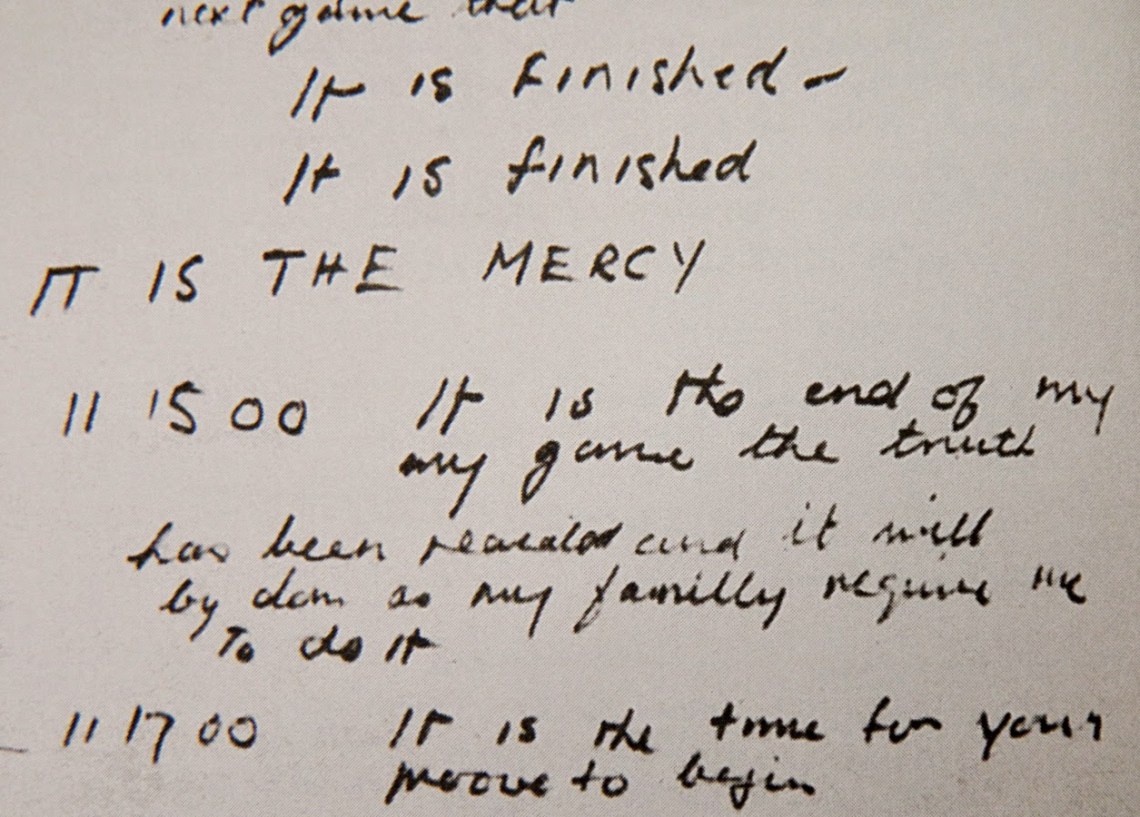 next game that
It is finished -
It is finished
IT IS THE MERCY
11 15 00 It is the end of my
my game the truth
has been revealed and it will
by don as my familly require me
to do it
11 17 00 It is the time for your
moove to begin